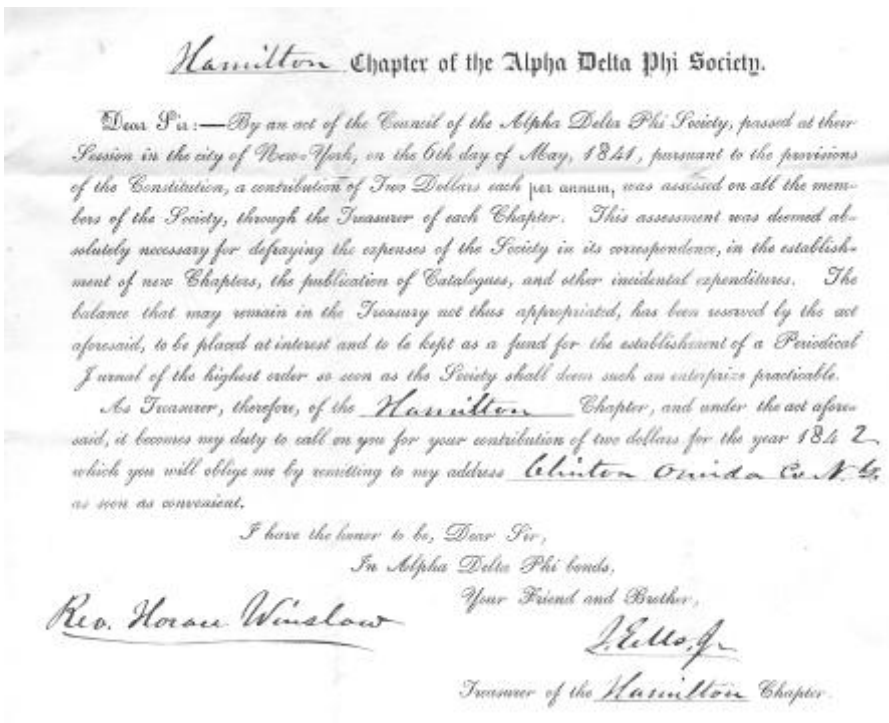 Hamilton Chapter of the Alpha Delta Phi Society.
Dear Sir:—By an act of the Council of the Alpha Delta Phi Society, passed at their
Session in the city of New-York, on the 6th day of May, 1841, pursuant to the provisions
of the Constitution, a contribution of Two Dollars each per annum, was assessed on all the mem-
bers of the Society, through the Treasurer of each Chapter. This assessment was deemed ab-
solutely necessary for defraying the expenses of the Society in its correspondence, in the establish-
ment of new Chapters, the publication of Catalogues, and other incidental expenditures. The
balance that may remain in the Treasury not thus appropriated, has been reserved by the act
aforesaid, to be placed at interest and to be kept as a fund for the establishment of a Periodical
J urnal of the highest order so soon as the Society shall deem such an enterprize practicable.
As Treasurer, therefore, of the Hamilton Chapter, and under the act afore-
said, it becomes my duty to call on you for your contribution of two dollars for the year 1842
which you will oblige me by remitting to my address Clinton Oneida Co N. Y.
as soon as convenient.
I have the honor to be, Dear Sir,
In Alpha Delta Phi bonds,
Your Friend and Brother,
Rev. Horace Winslow
J. Eells, Jr
Treasurer of the Hamilton Chapter.